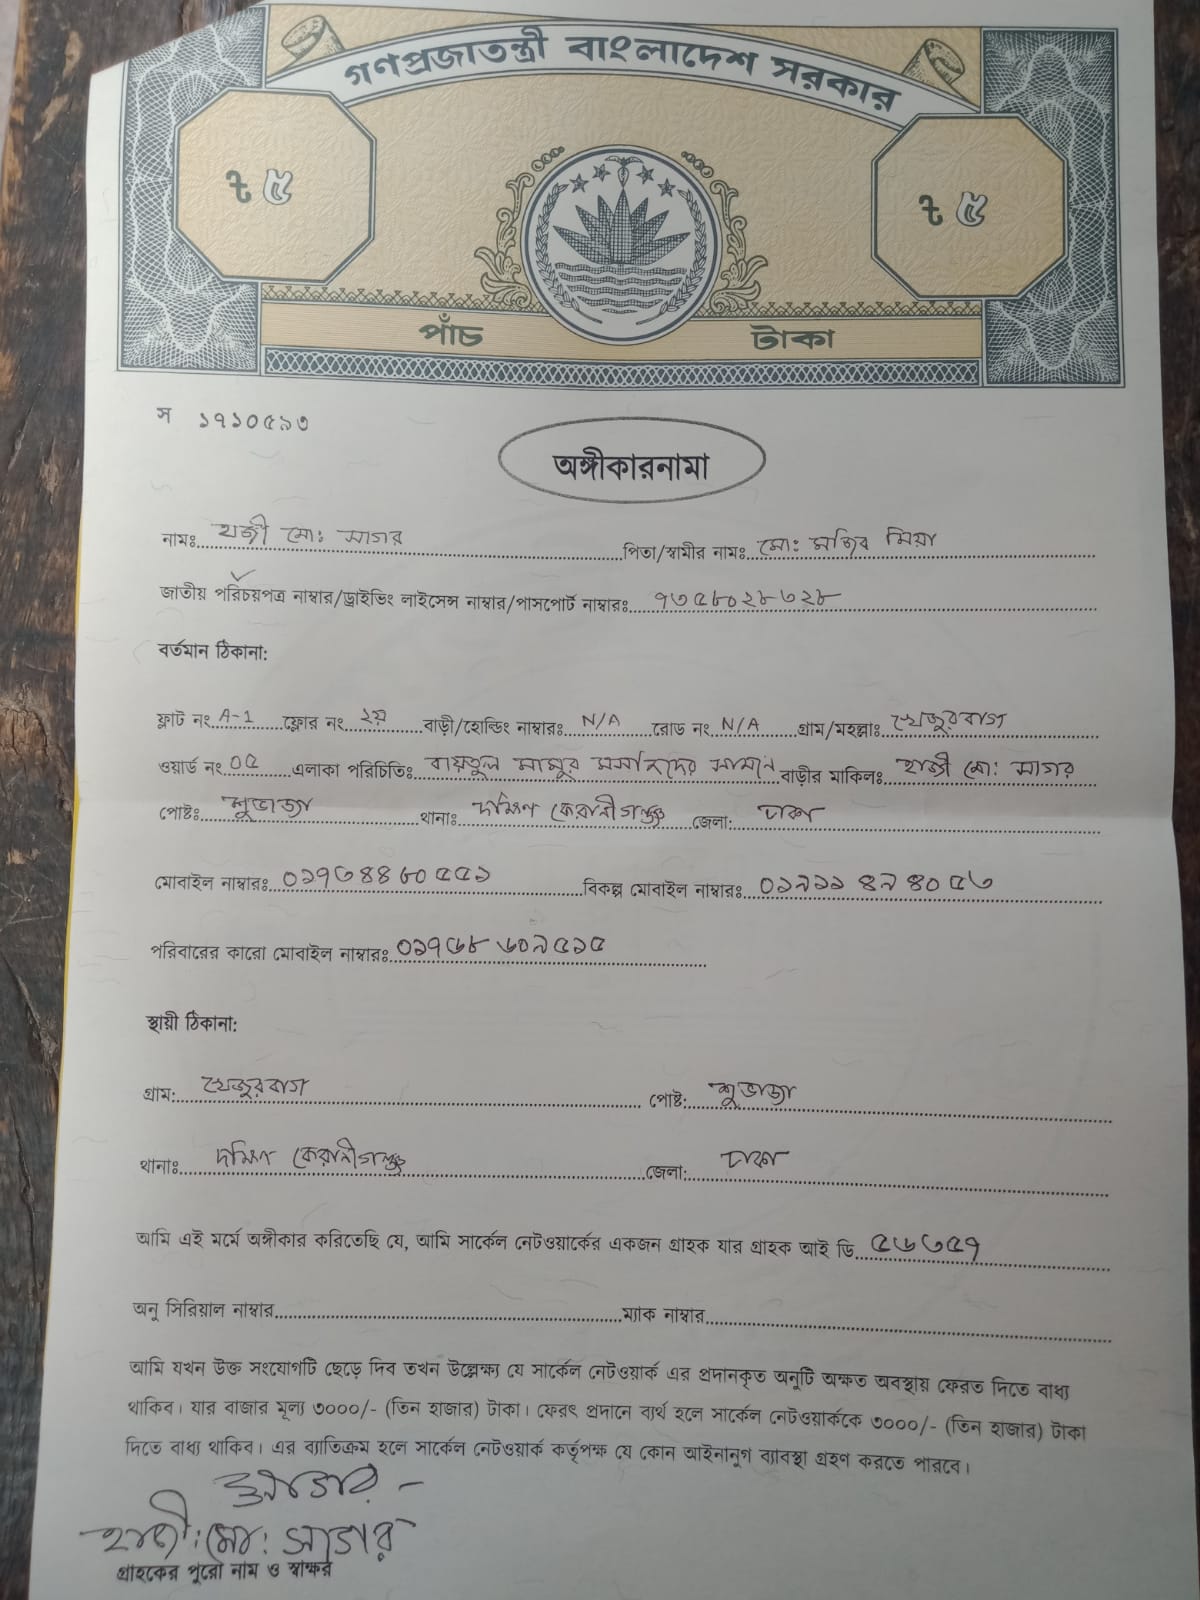 গণপ্রজাতন্ত্রী বাংলাদেশ সরকার
ট ৫
ট ৫
পাঁচ টাকা
স ১৭১০৫৯৩
অঙ্গীকারনামা
নামঃ হাজী মোঃ সাগর পিতা/স্বামীর নামঃ মোঃ মজিব মিয়া
জাতীয় পরিচয়পত্র নাম্বার/ড্রাইভিং লাইসেন্স নাম্বার/পাসপোর্ট নাম্বারঃ ৭৩৫৮০২৮৩২৮
বর্তমান ঠিকানা:
ফ্লাট নং A-1 ফ্লোর নং ২য় বাড়ী/হোল্ডিং নাম্বারঃ N/A রোড নং N/A গ্রাম/মহল্লাঃ খেজুরবাগ
ওয়ার্ড নং ০৫ এলাকা পরিচিতিঃ বায়তুল মামুর মসজিদের সামনে বাড়ীর মালিকঃ হাজী মো: সাগর
পোষ্টঃ শুভাড্যা থানাঃ দক্ষিণ কেরানীগঞ্জ জেলা: ঢাকা
মোবাইল নাম্বারঃ ০১৭৩৪৪৮০৫৫১ বিকল্প মোবাইল নাম্বারঃ ০১৯১১৪৯৪০৫৩
পরিবারের কারো মোবাইল নাম্বারঃ
স্থায়ী ঠিকানা:
গ্রাম: খেজুরবাগ পোষ্ট: শুভাড্যা
থানাঃ দক্ষিণ কেরানীগঞ্জ জেলা: ঢাকা
আমি এই মর্মে অঙ্গীকার করিতেছি যে, আমি সার্কেল নেটওয়ার্কের একজন গ্রাহক যার গ্রাহক আই ডি ৫৬৩৫৭
অনু সিরিয়াল নাম্বার ম্যাক নাম্বার
আমি যখন উক্ত সংযোগটি ছেড়ে দিব তখন উল্লেক্ষ্য যে সার্কেল নেটওয়ার্ক এর প্রদানকৃত অনুটি অক্ষত অবস্থায় ফেরত দিতে বাধ্য
থাকিব। যার বাজার মূল্য ৩০০০/- (তিন হাজার) টাকা। ফেরৎ প্রদানে ব্যর্থ হলে সার্কেল নেটওয়ার্ককে ৩০০০/- (তিন হাজার) টাকা
দিতে বাধ্য থাকিব। এর ব্যাতিক্রম হলে সার্কেল নেটওয়ার্ক কর্তৃপক্ষ যে কোন আইনানুগ ব্যাবস্থা গ্রহণ করতে পারবে।
হাজী: মো: সাগর
গ্রাহকের পুরো নাম ও স্বাক্ষর